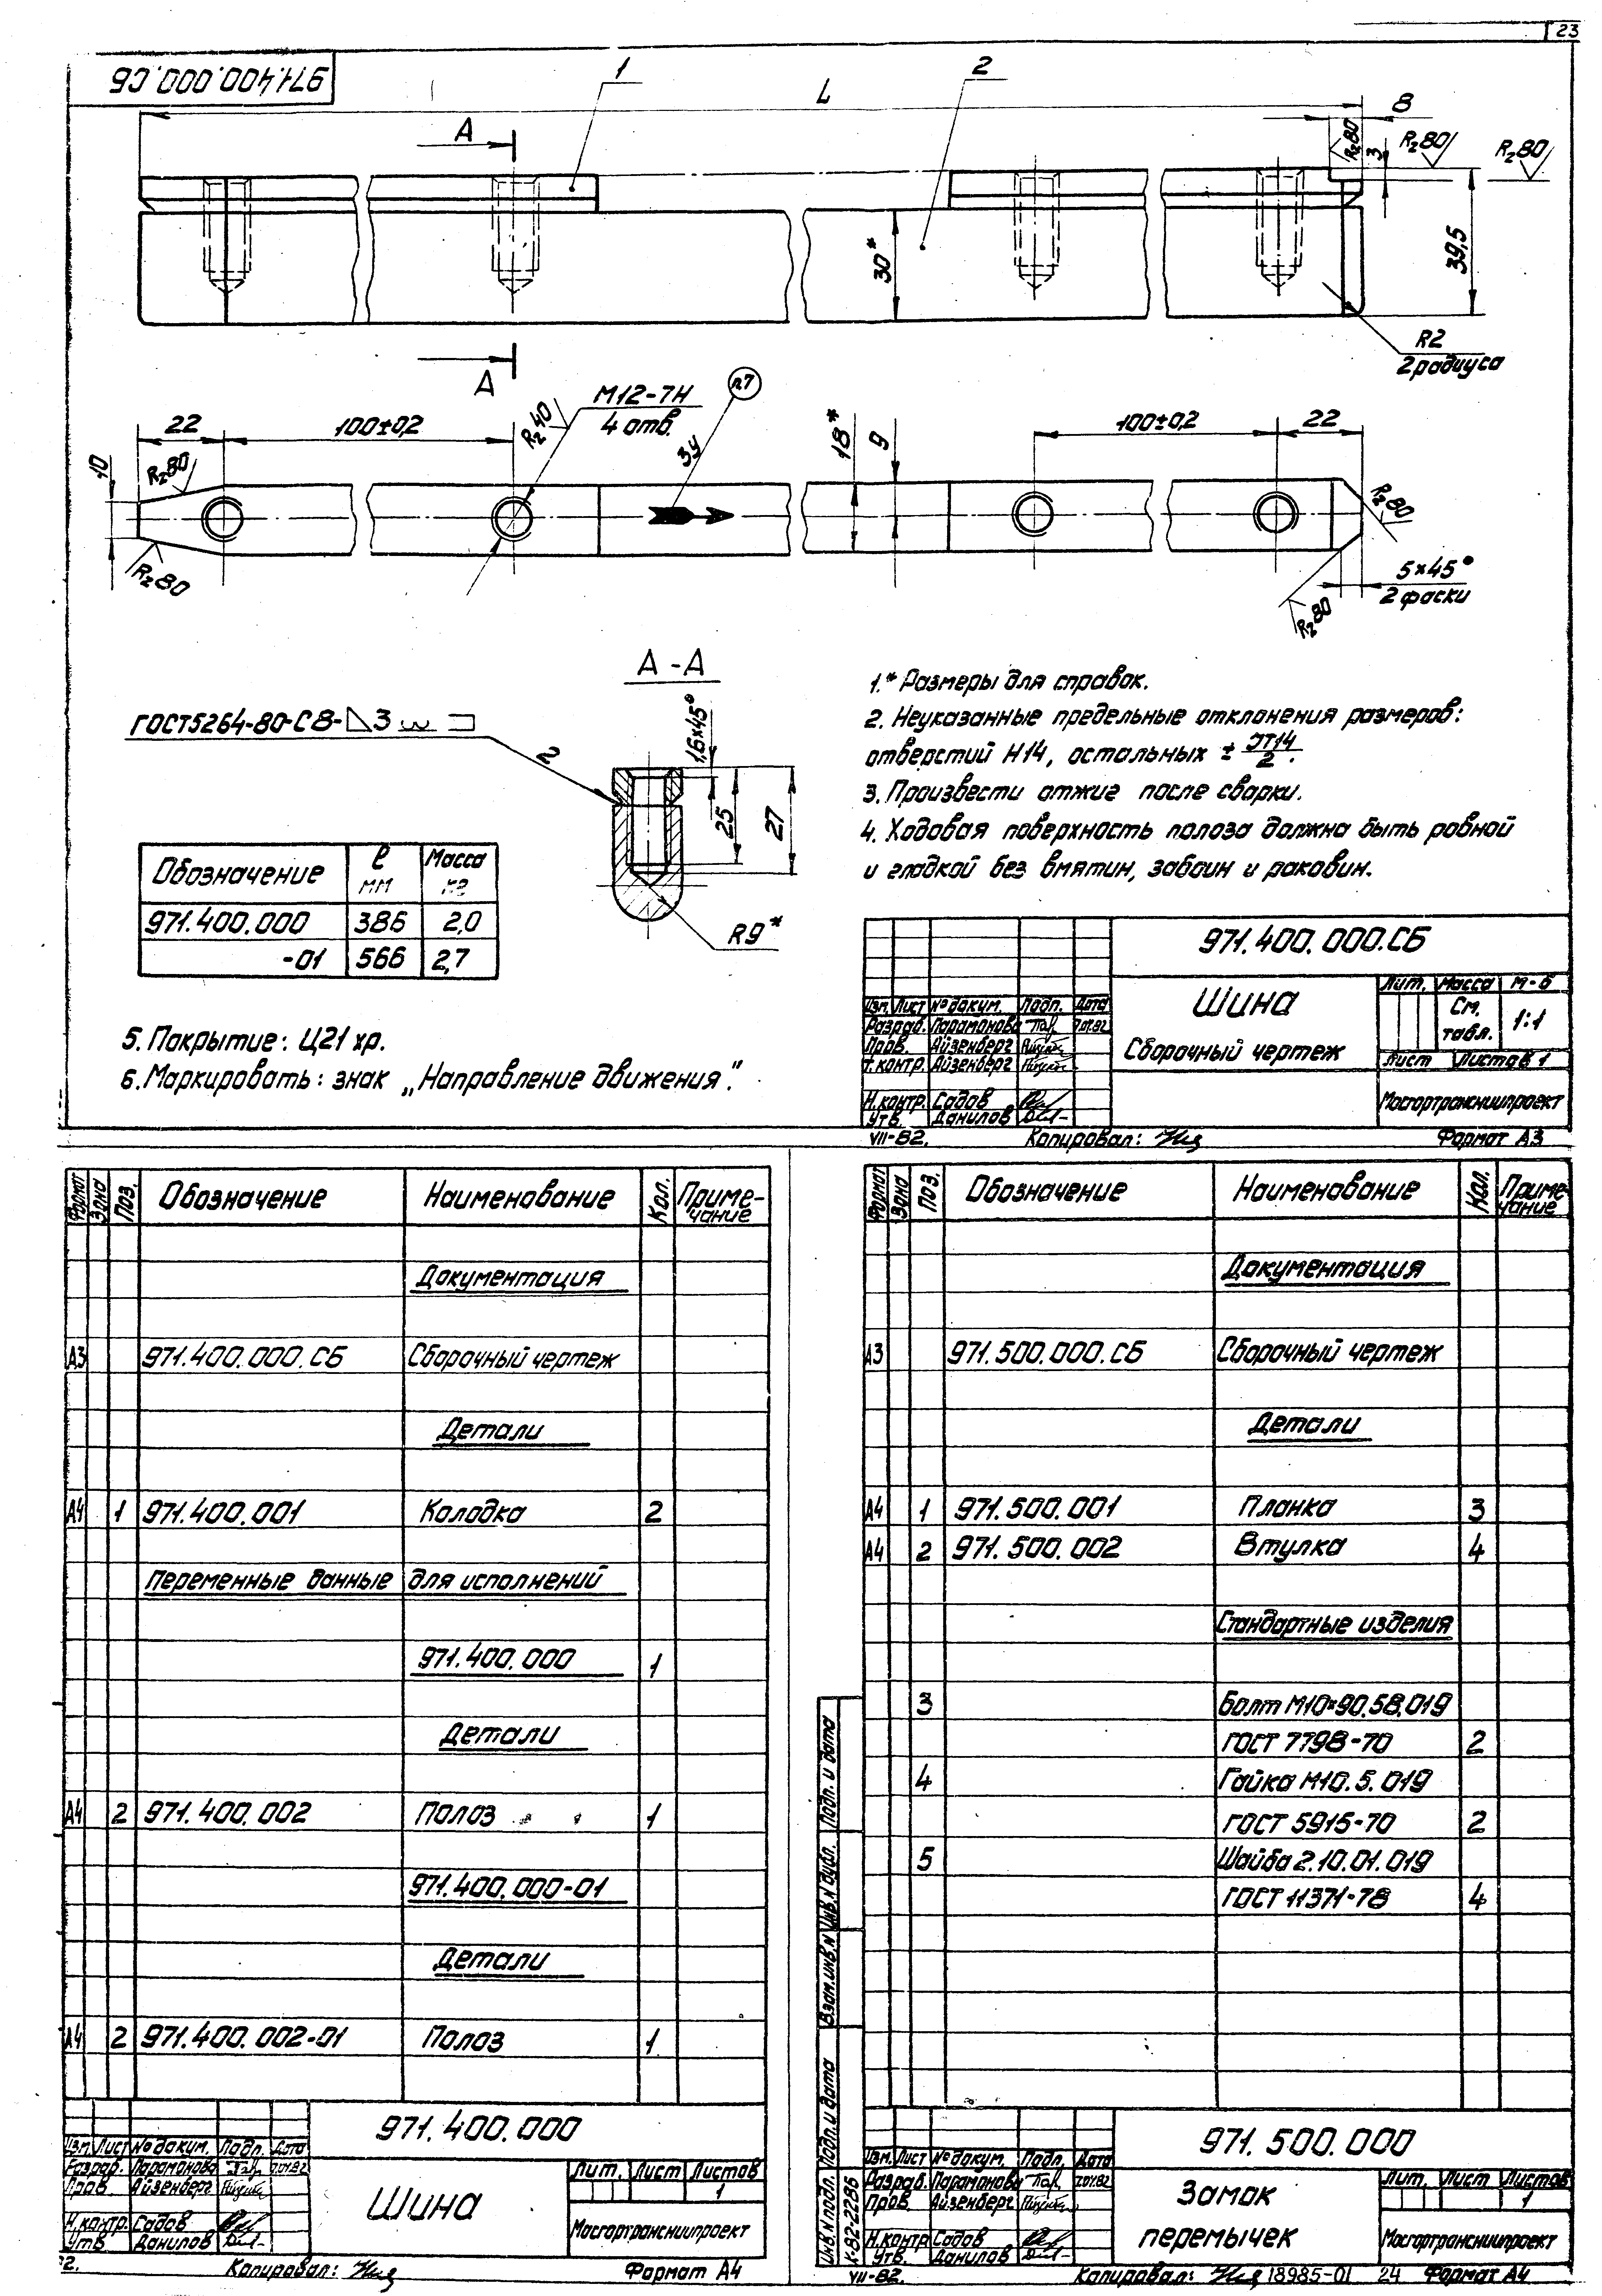 23
971.400.000.СБ
1
2
L
8
А
Rz80
3
Rz80
Rz80
30*
39,5
R2
2 радиуса
А
п.7
М12-7Н
4 отв.
Rz40
ЗУ
22
100±0,2
18*
9
100±0,2
22
10
Rz80
Rz80
Rz80
Rz80
5×45°
2 фаски
А-А
ГОСТ5264-80-С8-◺3
2
1,6×45°
25
27
R9*
1.* Размеры для справок.
2. Неуказанные предельные отклонения размеров:
отверстий Н14, остальных ± IT14/2.
3. Произвести отжиг после сварки.
4. Ходовая поверхность полоза должна быть ровной
и гладкой без вмятин, забоин и раковин.
Обозначение ℓ мм Масса кг
971.400.000 386 2,0
-01 566 2,7
5. Покрытие: Ц21 хр.
6. Маркировать: знак „Направление движения".
971.400.000.СБ
Шина
Сборочный чертеж
Лит. Масса М-б
См. табл. 1:1
Лист Листов 1
Мосгортрансниипроект
Изм. Лист № докум. Подп. Дата
Разраб. Парамонова 7.01.82
Пров. Айзенберг
Т.контр. Айзенберг
Н.контр. Садов
Утв. Данилов
VII-82. Копировал: Формат А3
Формат Зона Поз. Обозначение Наименование Кол. Приме-
чание
Документация
А3 971.400.000.СБ Сборочный чертеж
Детали
А4 1 971.400.001 Колодка 2
Переменные данные для исполнений
971.400.000 1
Детали
А4 2 971.400.002 Полоз 1
971.400.000-01
Детали
А4 2 971.400.002-01 Полоз 1
971.400.000
Изм. Лист № докум. Подп. Дата
Разраб. Парамонова 7.01.82
Пров. Айзенберг
Н.контр. Садов
Утв. Данилов
Шина
Лит. Лист Листов
1
Мосгортрансниипроект
82. Копировал: Формат А4
Формат Зона Поз. Обозначение Наименование Кол. Приме-
чание
Документация
А3 971.500.000.СБ Сборочный чертеж
Детали
А4 1 971.500.001 Планка 3
А4 2 971.500.002 Втулка 4
Стандартные изделия
3 Болт М10×90.58.019
ГОСТ 7798-70 2
4 Гайка М10.5.019
ГОСТ 5915-70 2
5 Шайба 2.10.01.019
ГОСТ 11371-78 4
Подп. и дата
Инв. N дубл.
Взам. инв. N
Подп. и дата
Инв. N подл.
К-82-2286
971.500.000
Изм. Лист № докум. Подп. Дата
Разраб. Парамонова 7.01.82
Пров. Айзенберг
Н.контр. Садов
Утв. Данилов
Замок
перемычек
Лит. Лист Листов
1
Мосгортрансниипроект
VII-82. Копировал: 18985-01 24 Формат А4